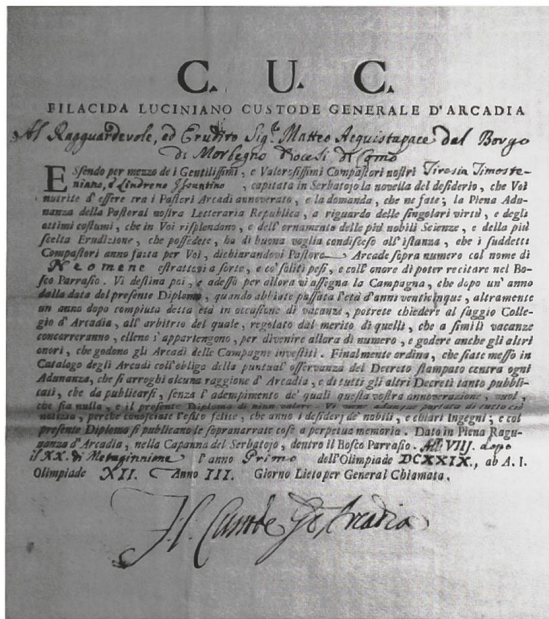 C. U. C.
FILACIDA LUCINIANO CUSTODE GENERALE D'ARCADIA
Al Ragguardevole, ed Erudito Sig.r Matteo Acquistapace dal Borgo
di Morbegno Diocesi di Como
ESsendo per mezzo de i Gentilissimi, e Valorosissimi Compastori nostri Tiresia Timoste-
niano, e Lindreno Issuntino, capitata in Serbatojo la novella del desiderio, che Voi
nutrite d'essere tra i Pastori Arcadi annoverato, e la domanda, che ne fate; la Piena Adu-
nanza della Pastoral nostra Letteraria Republica, a riguardo delle singolari virtù, e degli
ottimi costumi, che in Voi risplendono, e dell'ornamento delle più nobili Scienze, e della più
scelta Erudizione, che possedete, ha di buona voglia condisceso all'istanza, che i suddetti
Compastori anno fatta per Voi, dichiarandovi Pastore Arcade sopra numero col nome di
Neomene estrattovi a sorte, e co' soliti pesi, e coll'onore di poter recitare nel Bo-
sco Parrasio. Vi destina poi, e adesso per allora vi assegna la Campagna, che dopo un'anno
dalla data del presente Diploma, quando abbiate passata l'età d'anni venticinque, altramente
un anno dopo compiuta detta età in occasione di vacanze, potrete chiedere al saggio Colle-
gio d'Arcadia, all'arbitrio del quale, regolato dal merito di quelli, che a simili vacanze
concorreranno, elleno s'appartengono, per divenire allora di numero, e godere anche gli altri
onori, che godono gli Arcadi delle Campagne investiti. Finalmente ordina, che siate messo in
Catalogo degli Arcadi coll'obligo della puntual osservanza del Decreto stampato contra ogni
Adunanza, che si arroghi alcuna raggione d'Arcadia, e di tutti gli altri Decreti tanto pubbli-
cati, che da publicarsi, senza l'adempimento de' quali questa vostra annoverazione, vuol,
che sia nulla, e il presente Diploma di niun valore. Vi viene adunque portata di tutto ciò
notizia, perchè conosciate l'esito felice, che anno i desiderj de' nobili, e chiari Ingegni; e col
presente Diploma si publicano le sopranarrate cose a perpetua memoria. Dato in Piena Ragu-
nanza d'Arcadia, nella Capanna del Serbatojo, dentro il Bosco Parrasio. All' VIII. dopo
il XX. di Metaginnione l'anno Primo dell'Olimpiade DCXXIX., ab A. I.
Olimpiade XII. Anno III. Giorno Lieto per General Chiamata.
F. L. Custode G. d'Arcadia